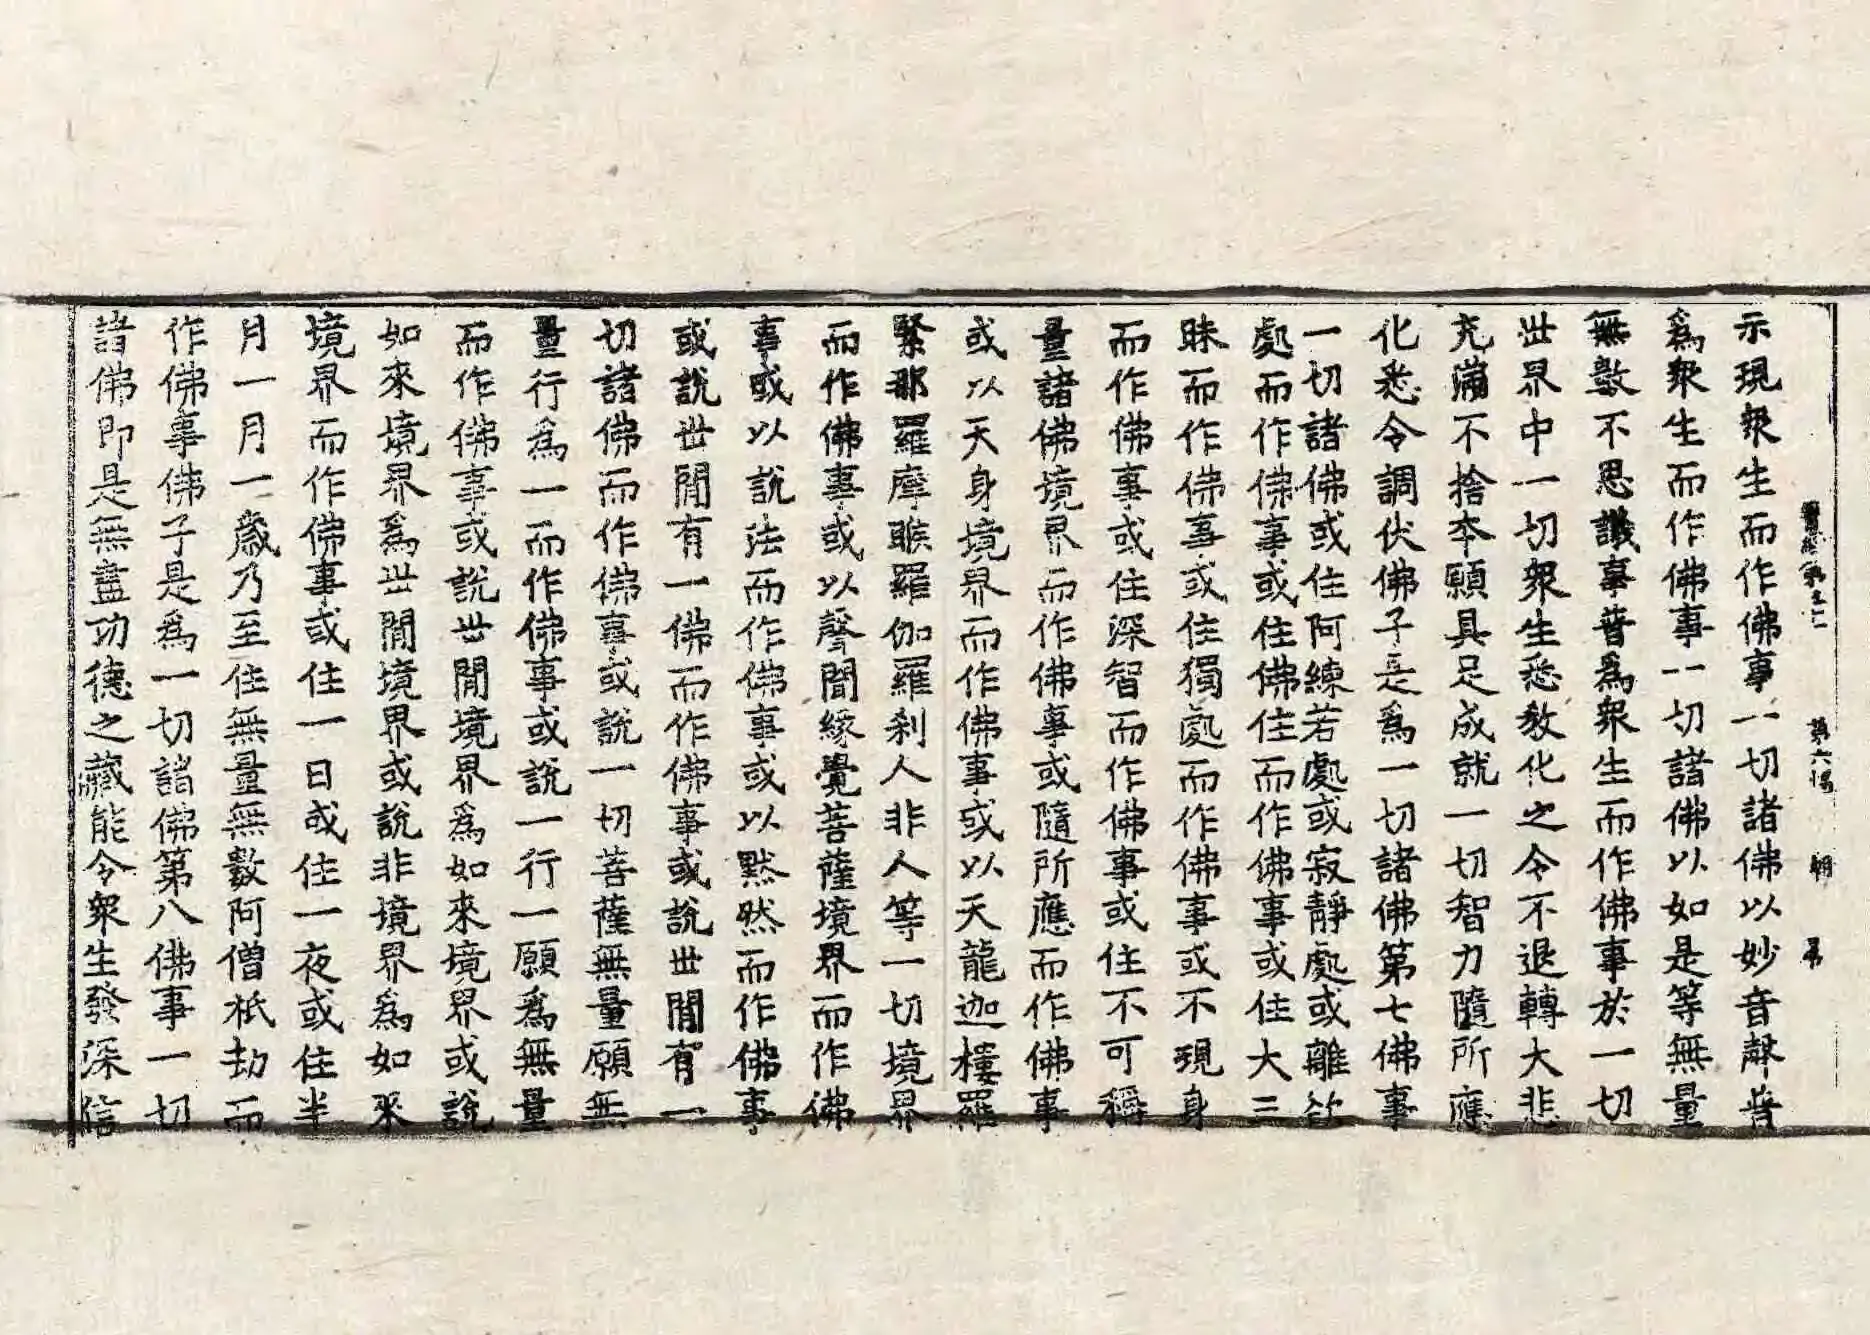 示現衆生而作佛事一切諸佛以妙音聲普
爲衆生而作佛事一切諸佛以如是等無量
無數不思議事普爲衆生而作佛事於一切
世界中一切衆生悉教化之令不退轉大悲
充滿不捨本願具足成就一切智力隨所應
化悉令調伏佛子是爲一切諸佛第七佛事
一切諸佛或住阿練若處或寂靜處或離欲
處而作佛事或住佛住而作佛事或住大三
昧而作佛事或住獨處而作佛事或不現身
而作佛事或住深智而作佛事或住不可稱
量諸佛境界而作佛事或隨所應而作佛事
或以天身境界而作佛事或以天龍迦樓羅
緊那羅摩睺羅伽羅刹人非人等一切境界
而作佛事或以聲聞緣覺菩薩境界而作佛
事或以說法而作佛事或以默然而作佛事
或說世間有一佛而作佛事或說世間有一
切諸佛而作佛事或說一切菩薩無量願無
量行爲一而作佛事或說一行一願爲無量
而作佛事或說世間境界爲如來境界或說
如來境界爲世間境界或說非境界爲如來
境界而作佛事或住一日或住一夜或住半
月一月一歲乃至住無量無數阿僧祇劫而
作佛事佛子是爲一切諸佛第八佛事一切
諸佛即是無盡功德之藏能令衆生發深信